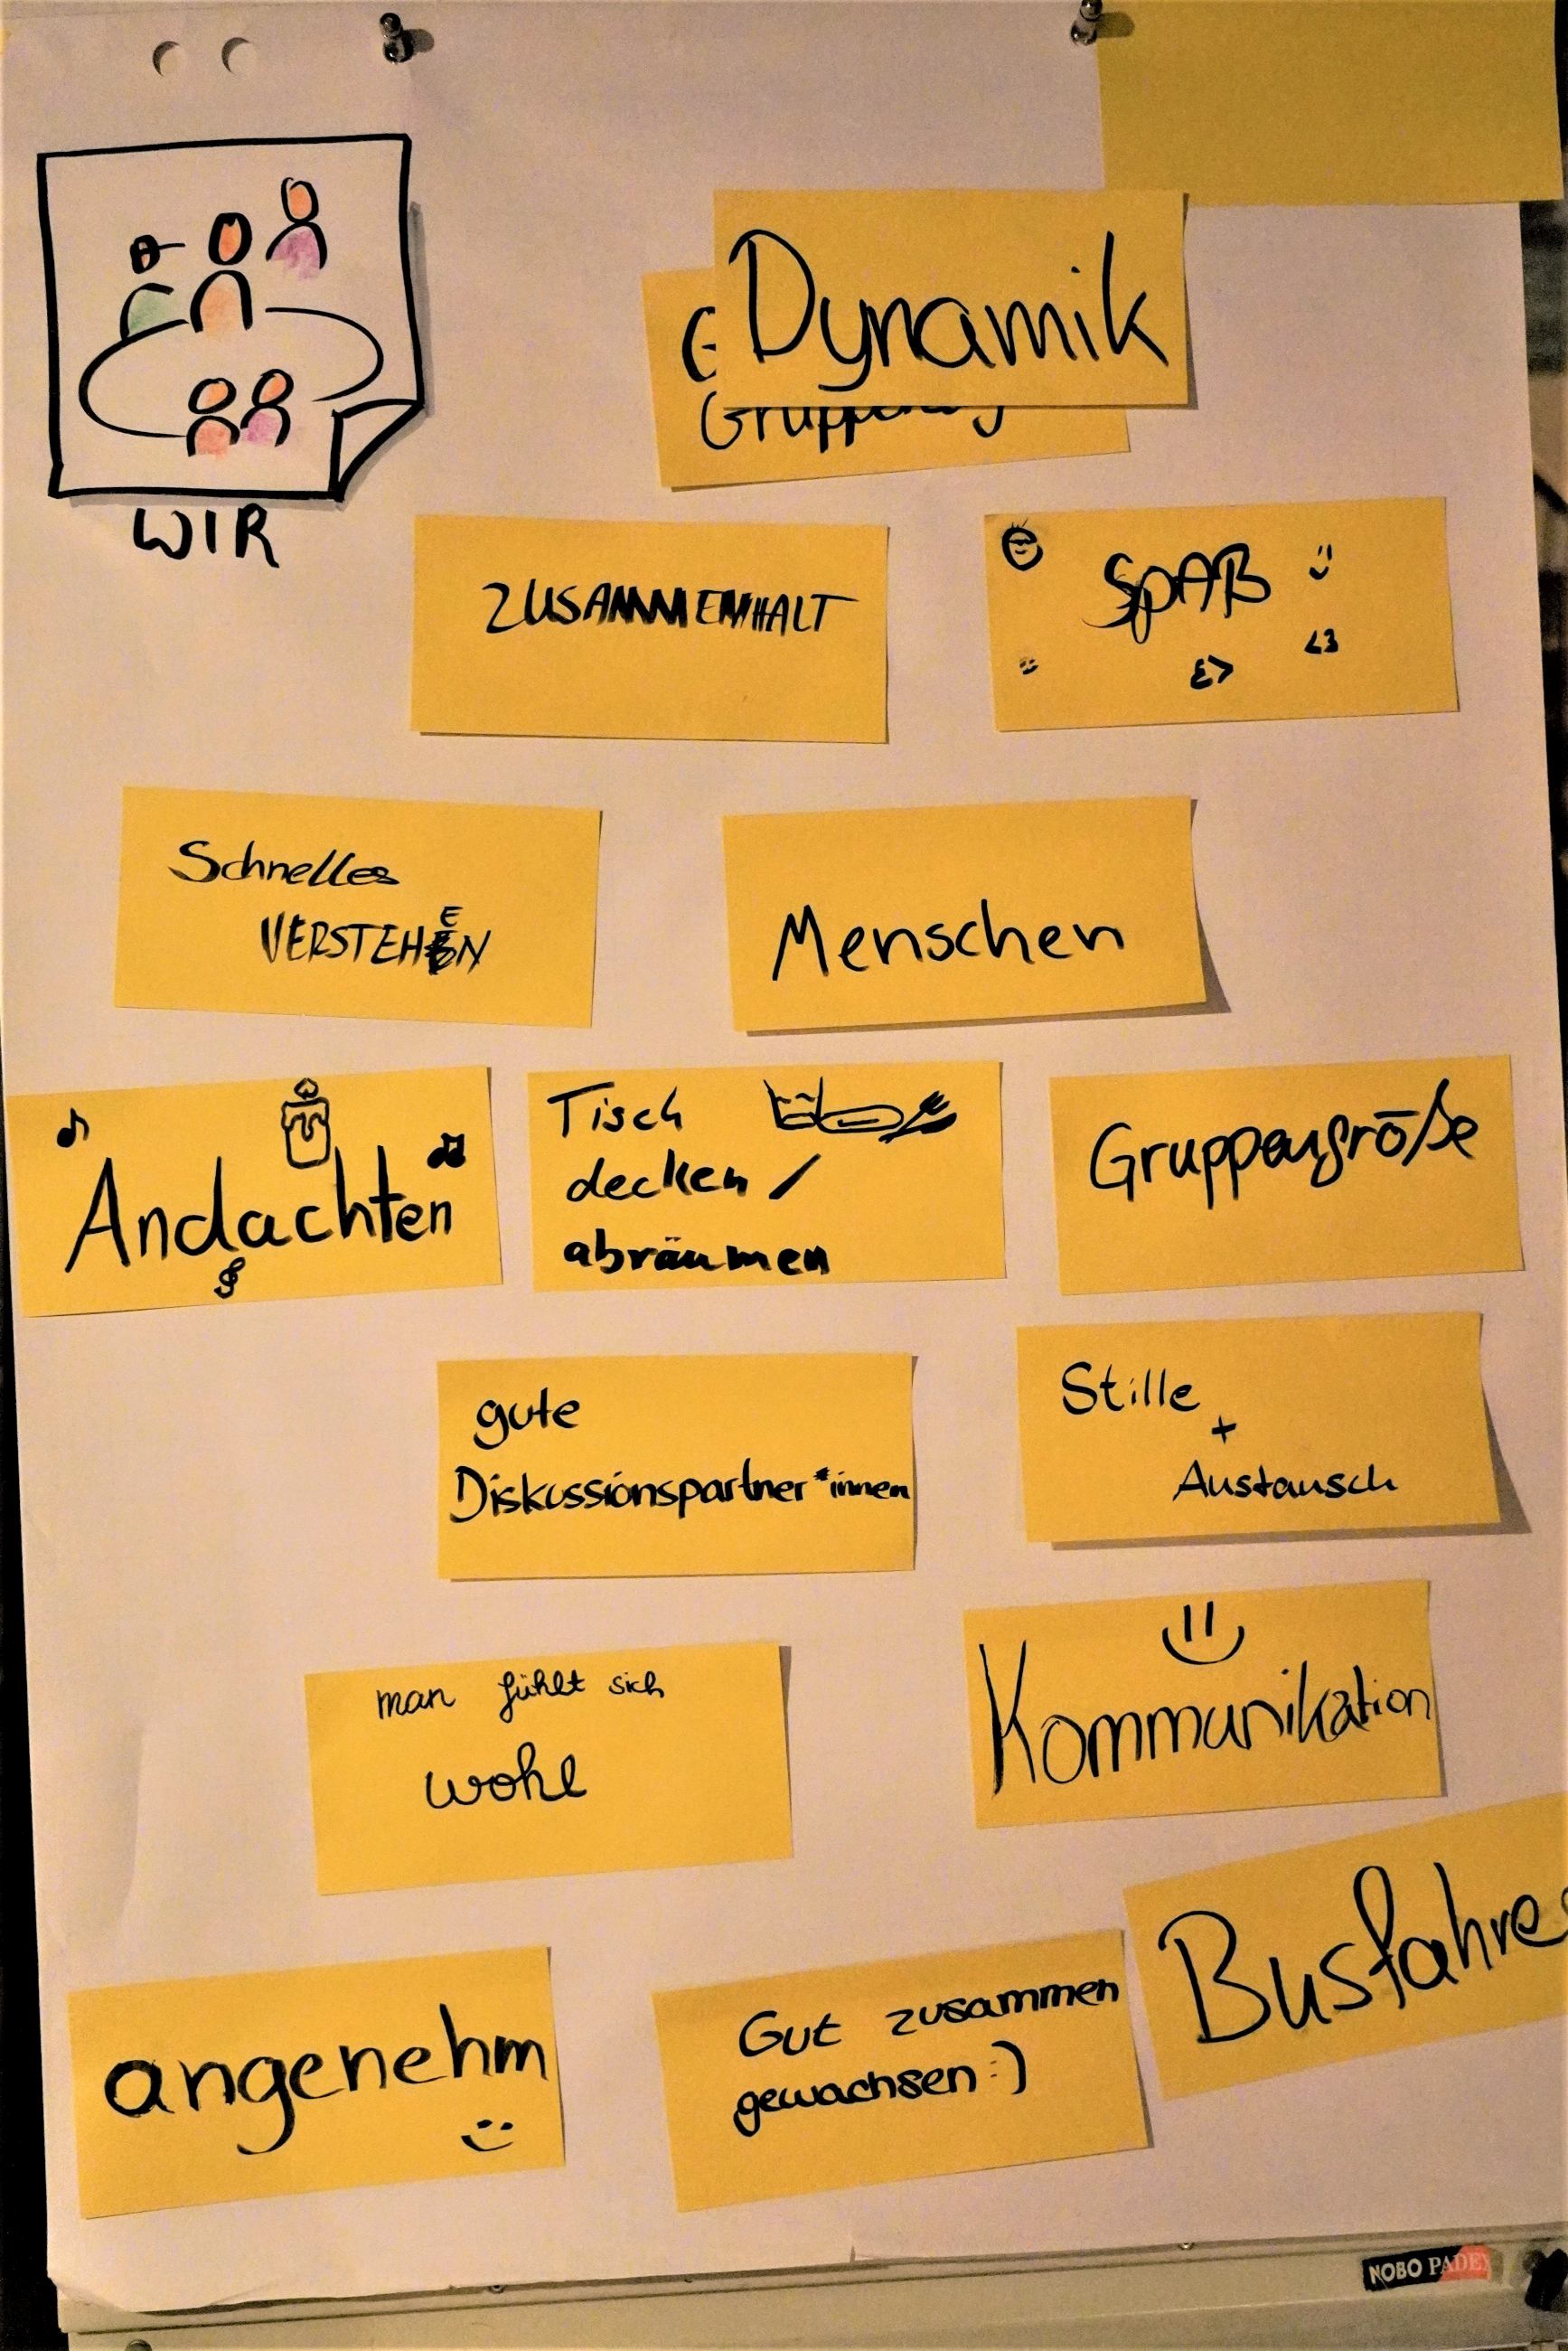 Dynamik
WIR
ZUSAMMENHALT
SpAß :)
<3
<3
Schnelles
VERSTEHEN
Menschen
Andachten
Tisch
decken /
abräumen
Gruppengröße
gute
Diskussionspartner*innen
Stille
+
Austausch
man fühlt sich
wohl
Kommunikation
Busfahre
angenehm
Gut zusammen
gewachsen :)
NOBO PADEX